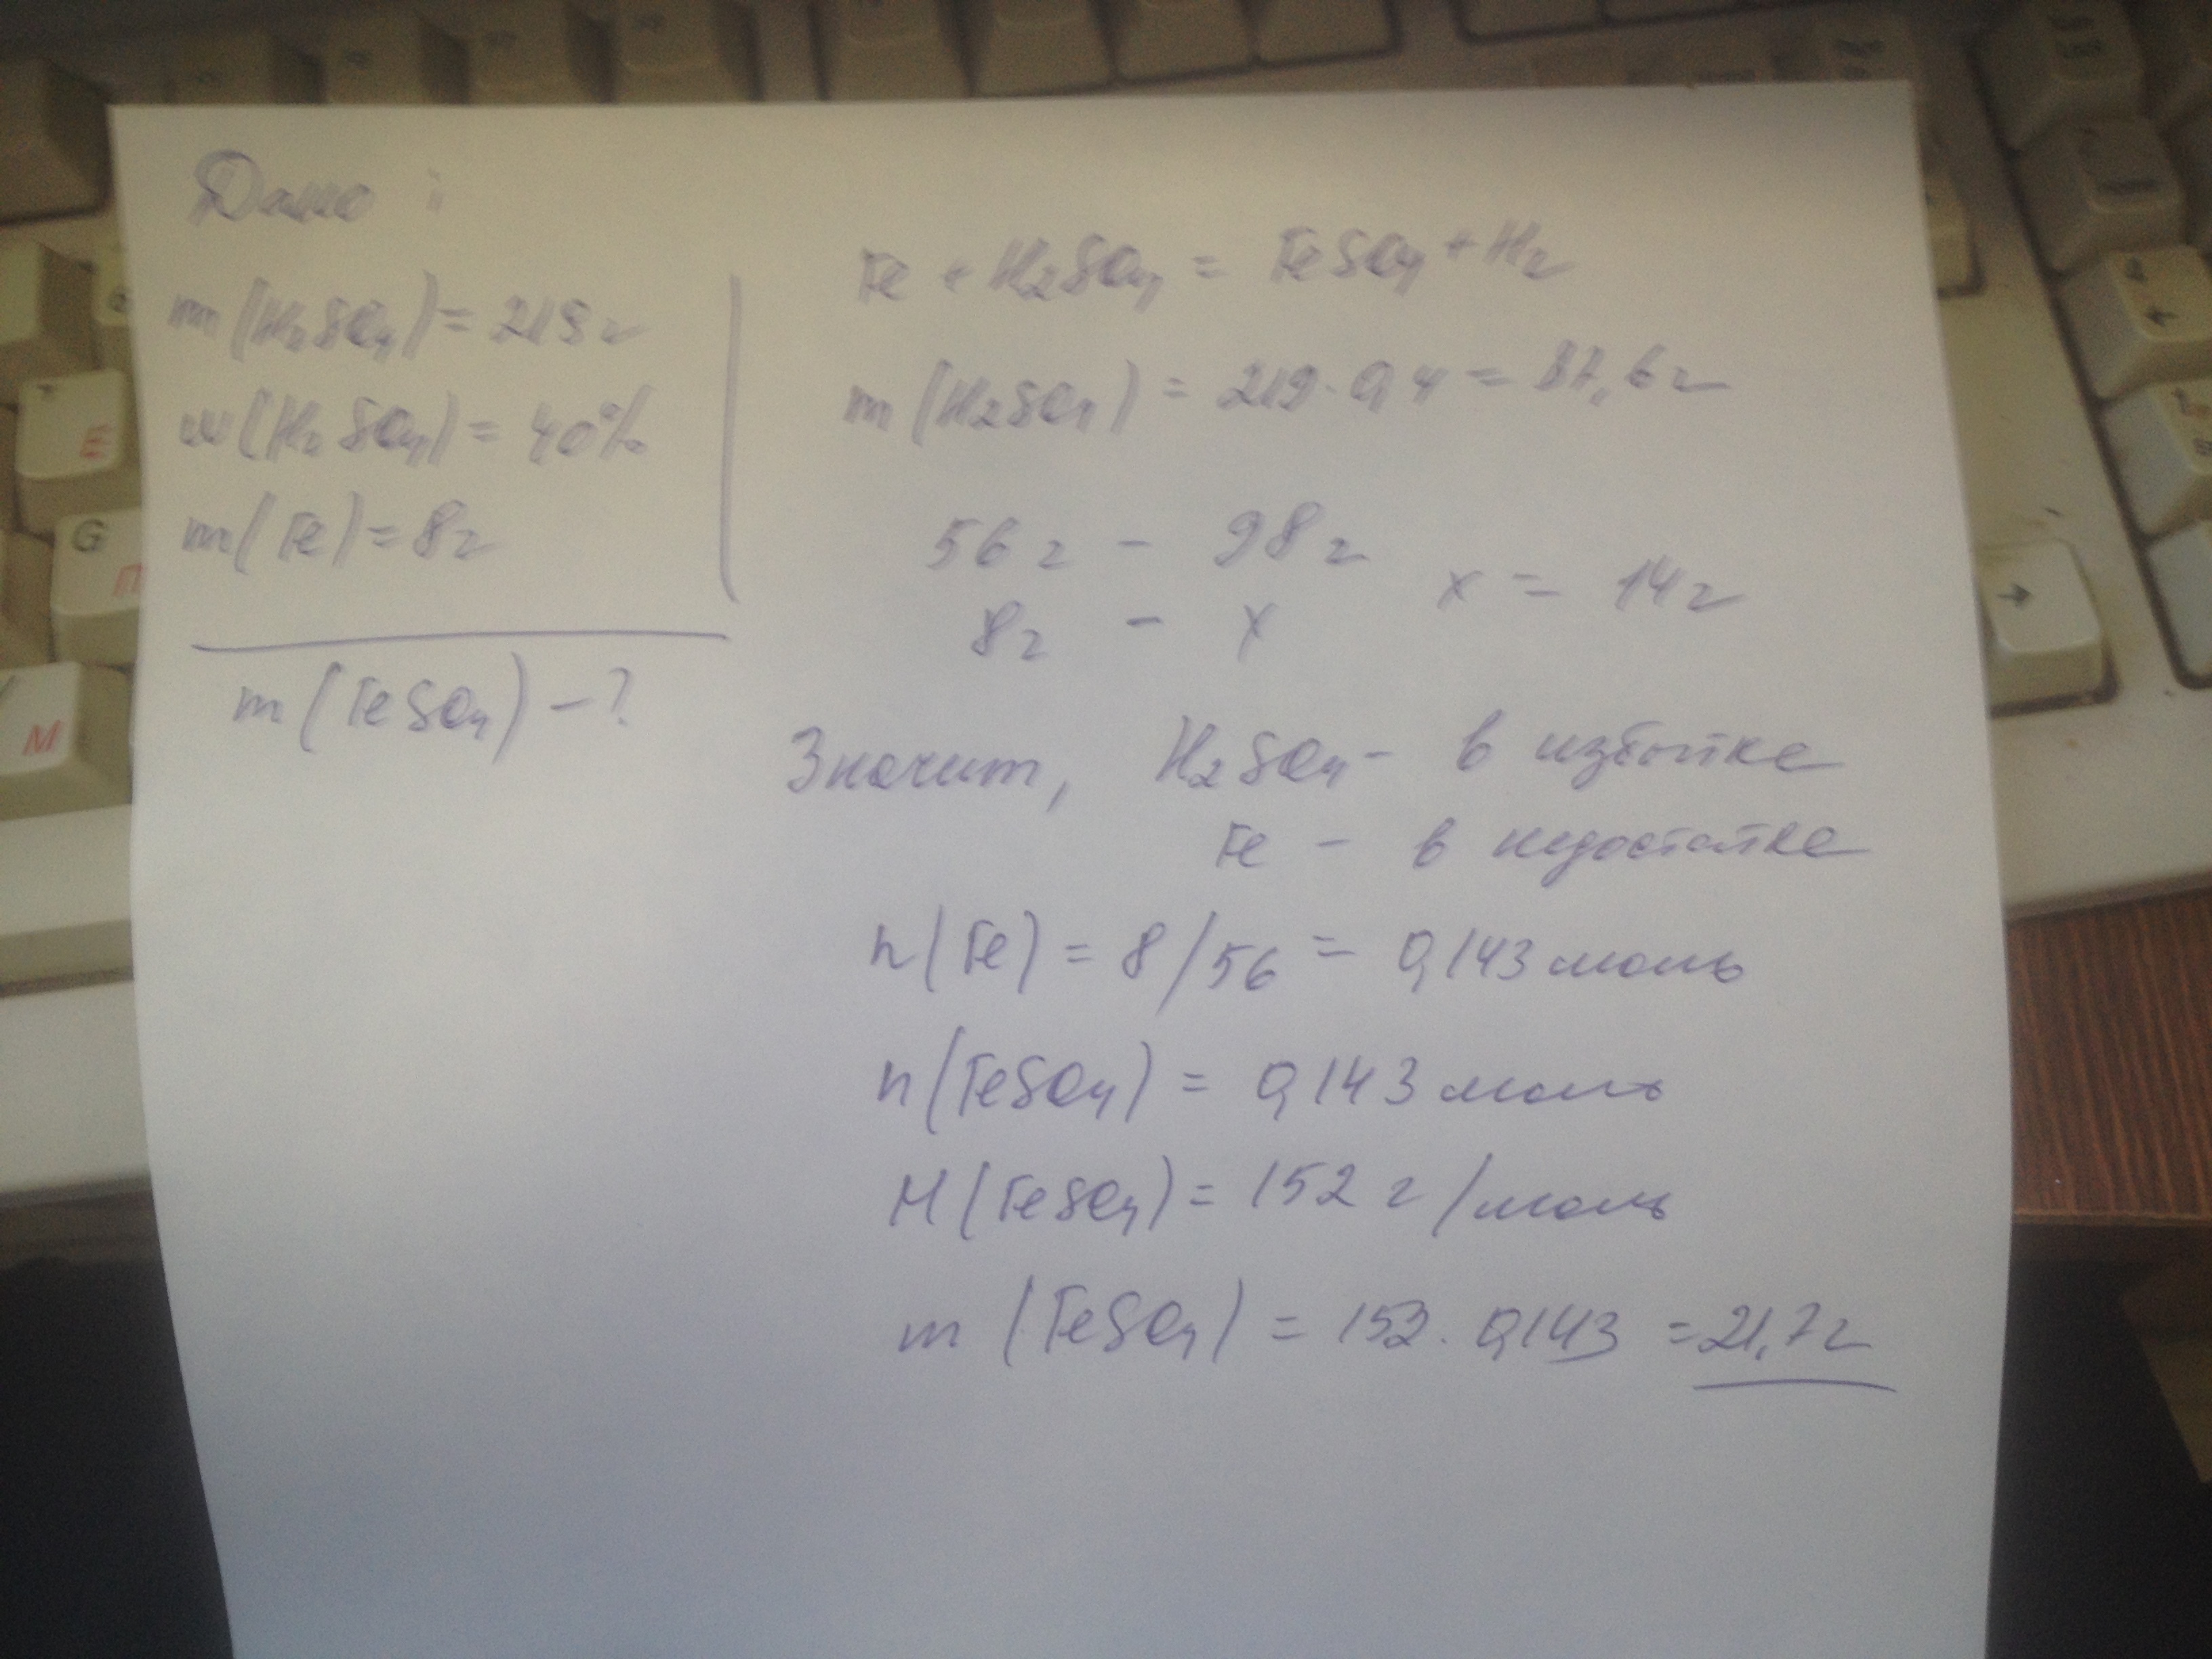 Дано:
m(H₂SO₄) = 219 г
w(H₂SO₄) = 40%
m(Fe) = 8 г
m(FeSO₄) - ?
Fe + H₂SO₄ = FeSO₄ + H₂
m(H₂SO₄) = 219 · 0,4 = 87,6 г
56 г - 98 г
8 г - x
x = 14 г
Значит, H₂SO₄ - в избытке
Fe - в недостатке
n(Fe) = 8/56 = 0,143 моль
n(FeSO₄) = 0,143 моль
M(FeSO₄) = 152 г/моль
m(FeSO₄) = 152 · 0,143 = 21,7 г
E
G
П
M
4